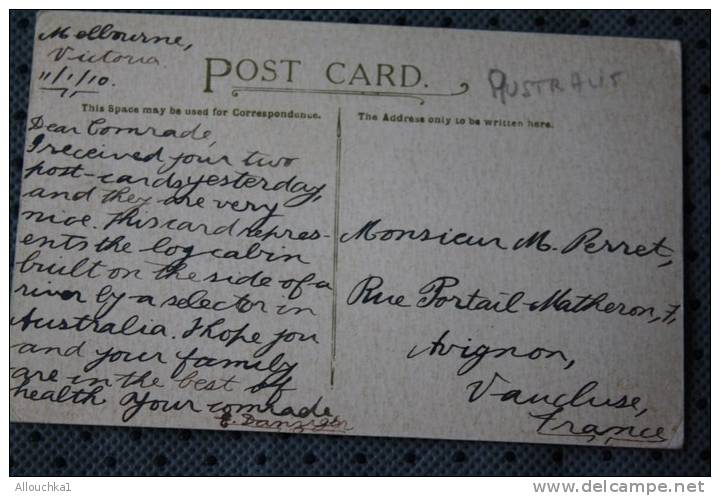 Melbourne,
Victoria.
11/1/10.
POST CARD.
AUSTRALIE
This Space may be used for Correspondence.
The Address only to be written here.
Dear Comrade,
I received your two
post-cards yesterday,
and they are very
nice. This card repres-
ents the log cabin
built on the side of a
river by a selector in
Australia. I hope you
and your family
are in the best of
health Your comrade
E. Danziger
Monsieur M. Perret,
Rue Portail-Matheron, 7,
Avignon,
Vaucluse,
France
Allouchka1
www.delcampe.net